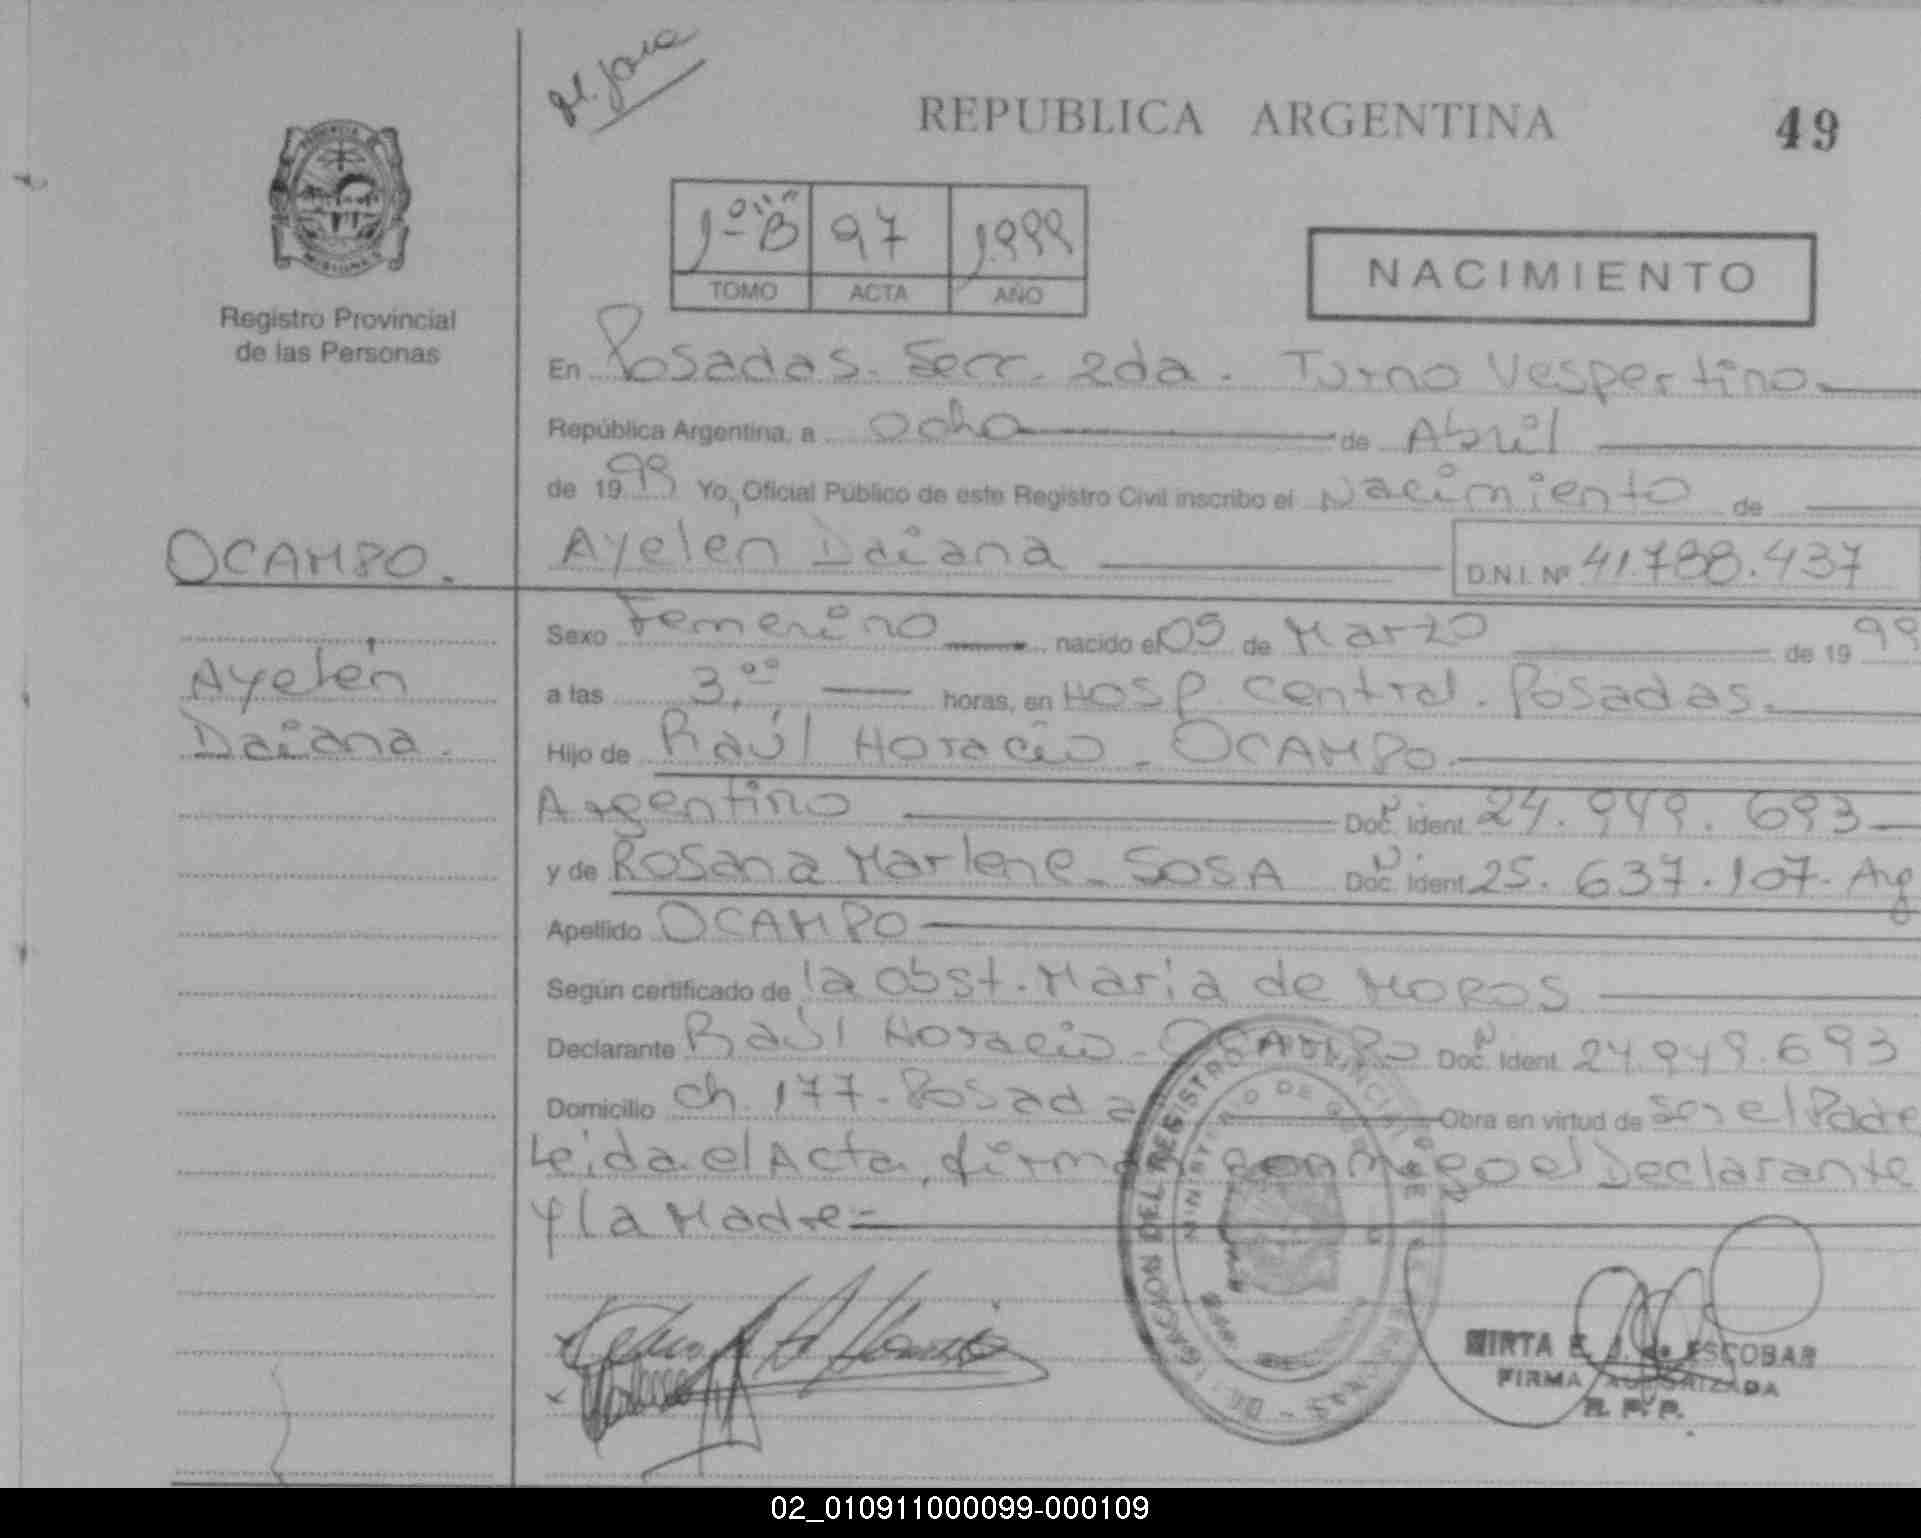 REPUBLICA ARGENTINA
49
1º "B" 97 1999
TOMO ACTA AÑO
NACIMIENTO
Registro Provincial
de las Personas
En Posadas. Secc. 2da. Turno Vespertino
República Argentina, a ocho de Abril
de 1999 Yo, Oficial Público de este Registro Civil inscribo el Nacimiento de
OCAMPO. Ayelen Daiana D.N.I. Nº 41.788.437
Ayelén
Daiana.
Sexo Femenino nacido el 09 de Marzo de 1999
a las 3,ºº horas, en Hosp. Central. Posadas.
Hijo de Raúl Horacio OCAMPO.
Argentino Doc. Nº Ident. 24.949.693
y de Rosana Marlene SOSA Doc. Nº Ident. 25.637.107. Arg
Apellido OCAMPO
Según certificado de la Obst. Maria de MOROS
Declarante Raúl Horacio OCAMPO Doc. Nº Ident. 24.949.693
Domicilio ch. 177. Posadas Obra en virtud de ser el Padre
Leida el Acta, firman conmigo el Declarante
y la Madre
MIRTA E. J. de ESCOBAR
FIRMA AUTORIZADA
R. P. P.
02_010911000099-000109